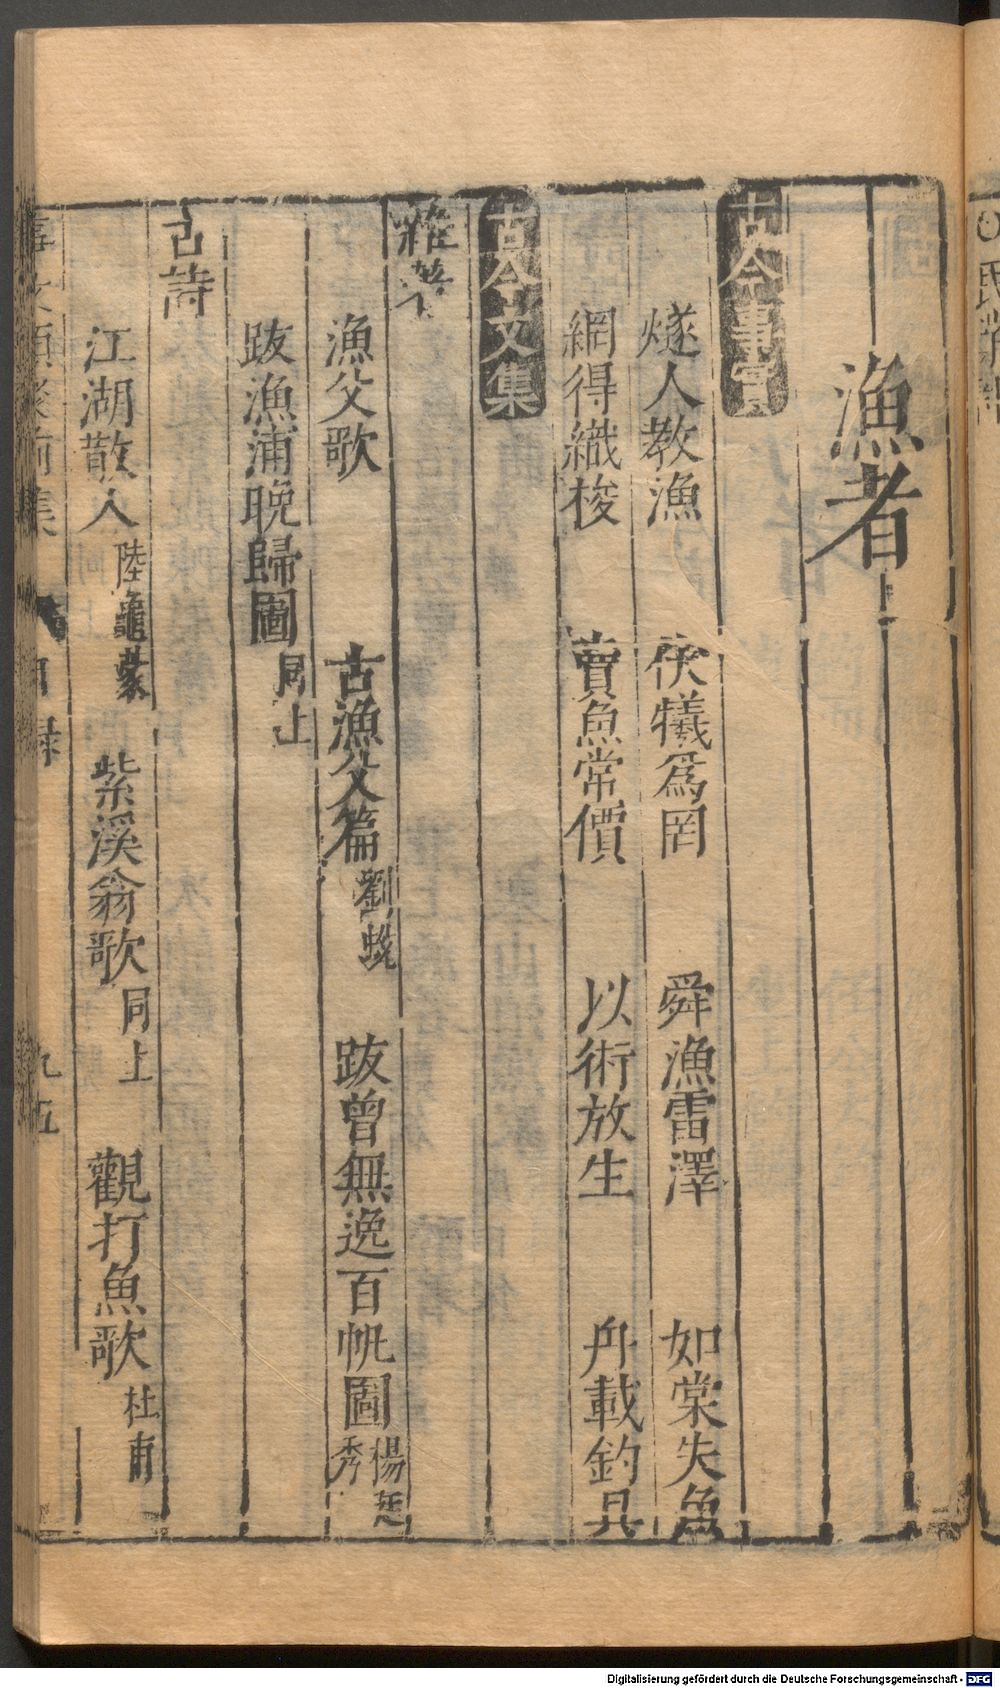 漁者
古今事實
燧人教漁 伏犧爲罔 舜漁雷澤 如棠失魚
網得織梭 賣魚常價 以術放生 舟載釣具
古今文集
雜著
漁父歌 古漁父篇 劉蛻 跋曾無逸百帆圖 楊廷秀
跋漁浦晚歸圖 同上
古詩
江湖散人 陸龜蒙 紫溪翁歌 同上 觀打魚歌 杜甫
事文類聚前集 目錄 九五
Digitalisierung gefördert durch die Deutsche Forschungsgemeinschaft - DFG